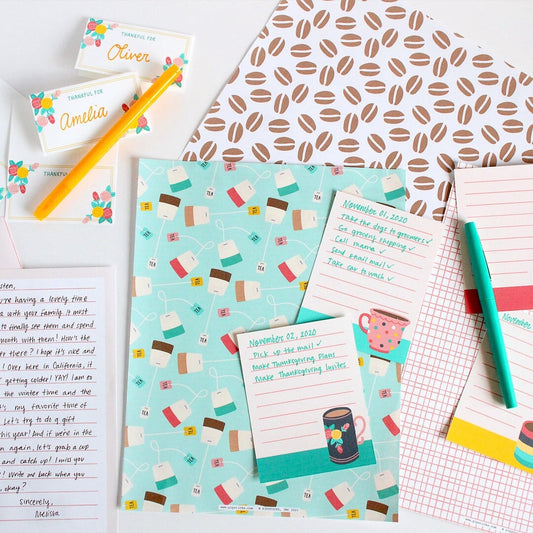 THANKFUL FOR
Oliver
THANKFUL FOR
Amelia
THANKFUL
November 01, 2020
Take the dogs to groomers ✓
Go grocery shopping ✓
Call mama ✓
Send email mail ✓
Take car to wash ✓
November 02, 2020
Pick up the mail ✓
Make Thanksgiving Plans
Make Thanksgiving Invites
November
sten,
you're having a lovely time
with your family, it must
to finally see them and spend
month with them! How's the
er there? I hope it's nice and
! Over here in California, it
getting colder! YAY! I am so
the winter time and the
's my favorite time of
Let's try to do a gift
this year! And if were in the
n again, let's grab a cup
and catch up! I miss you
! Write me back when you
, okay?
Sincerely,
Melista
TEA
TEA
TEA
TEA
TEA
TEA